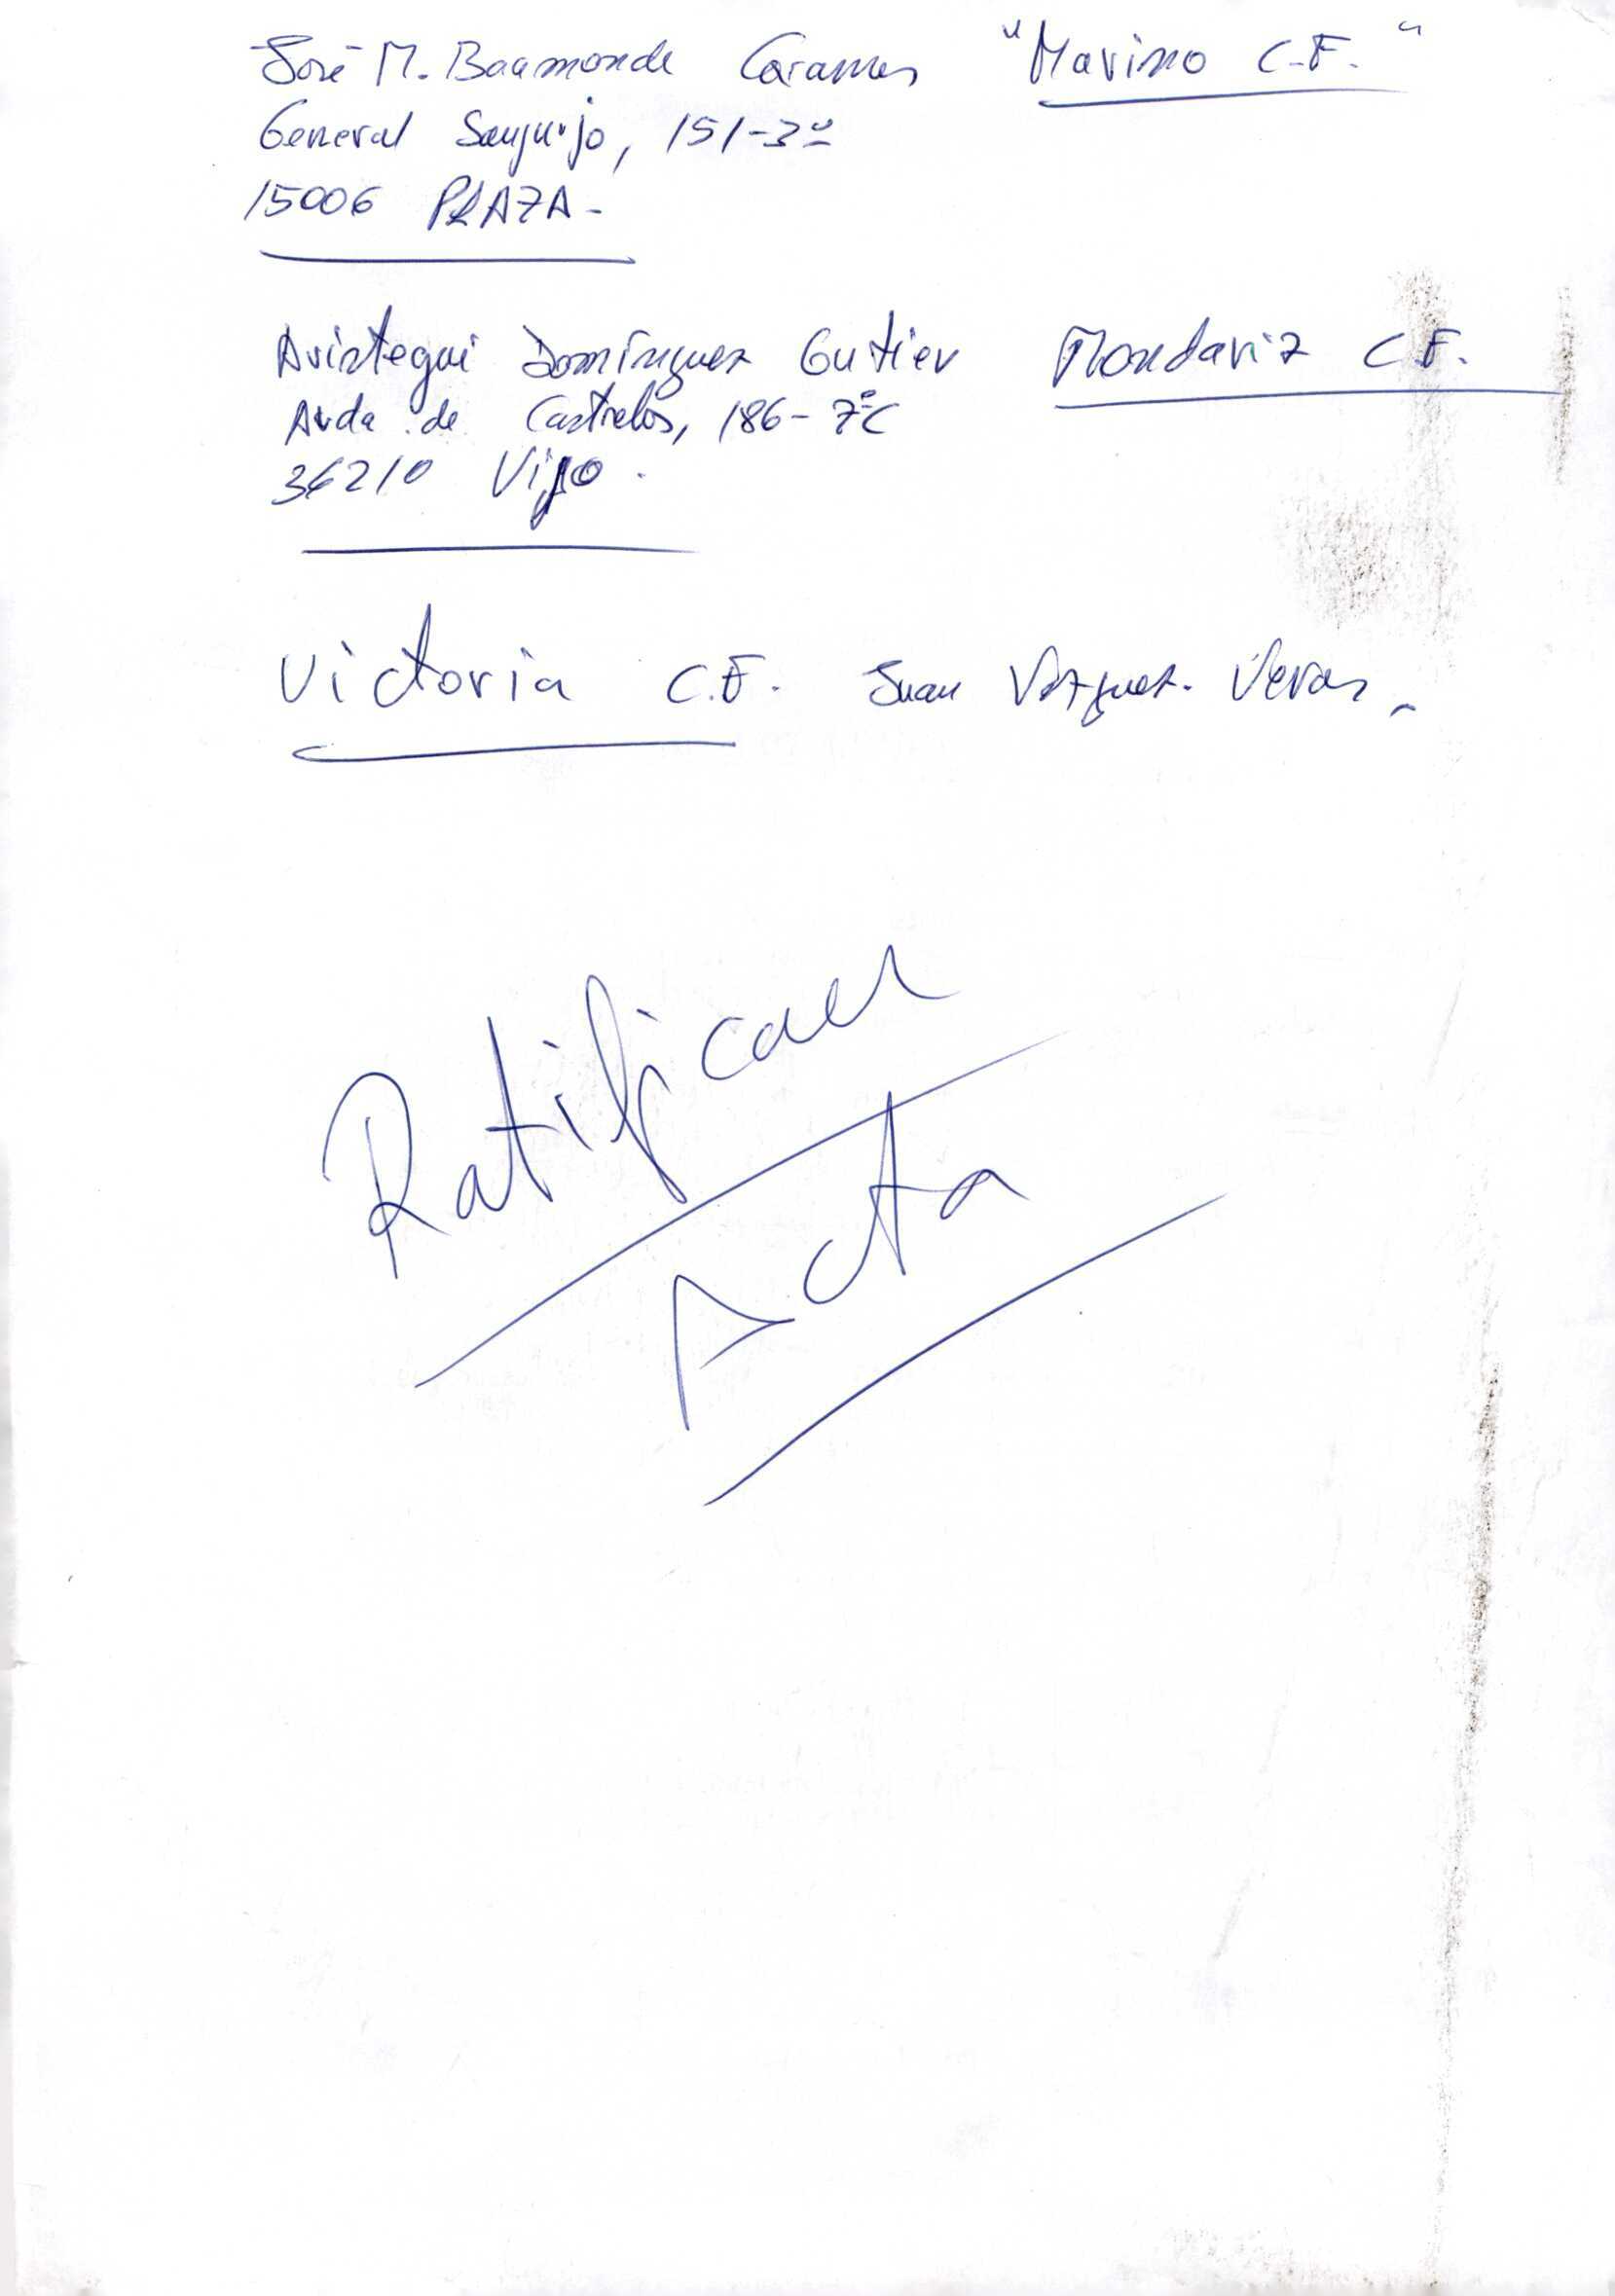 José M. Baamonde Caramés "Marino C.F."
General Sanjurjo, 151-3º
15006 PLAZA-
Aristegui Domínguez Gutier Mondariz C.F.
Avda. de Castrelos, 186-7ºC
36210 Vigo.
Victoria C.F. Juan Vázquez. Veras
Ratifican
Acta